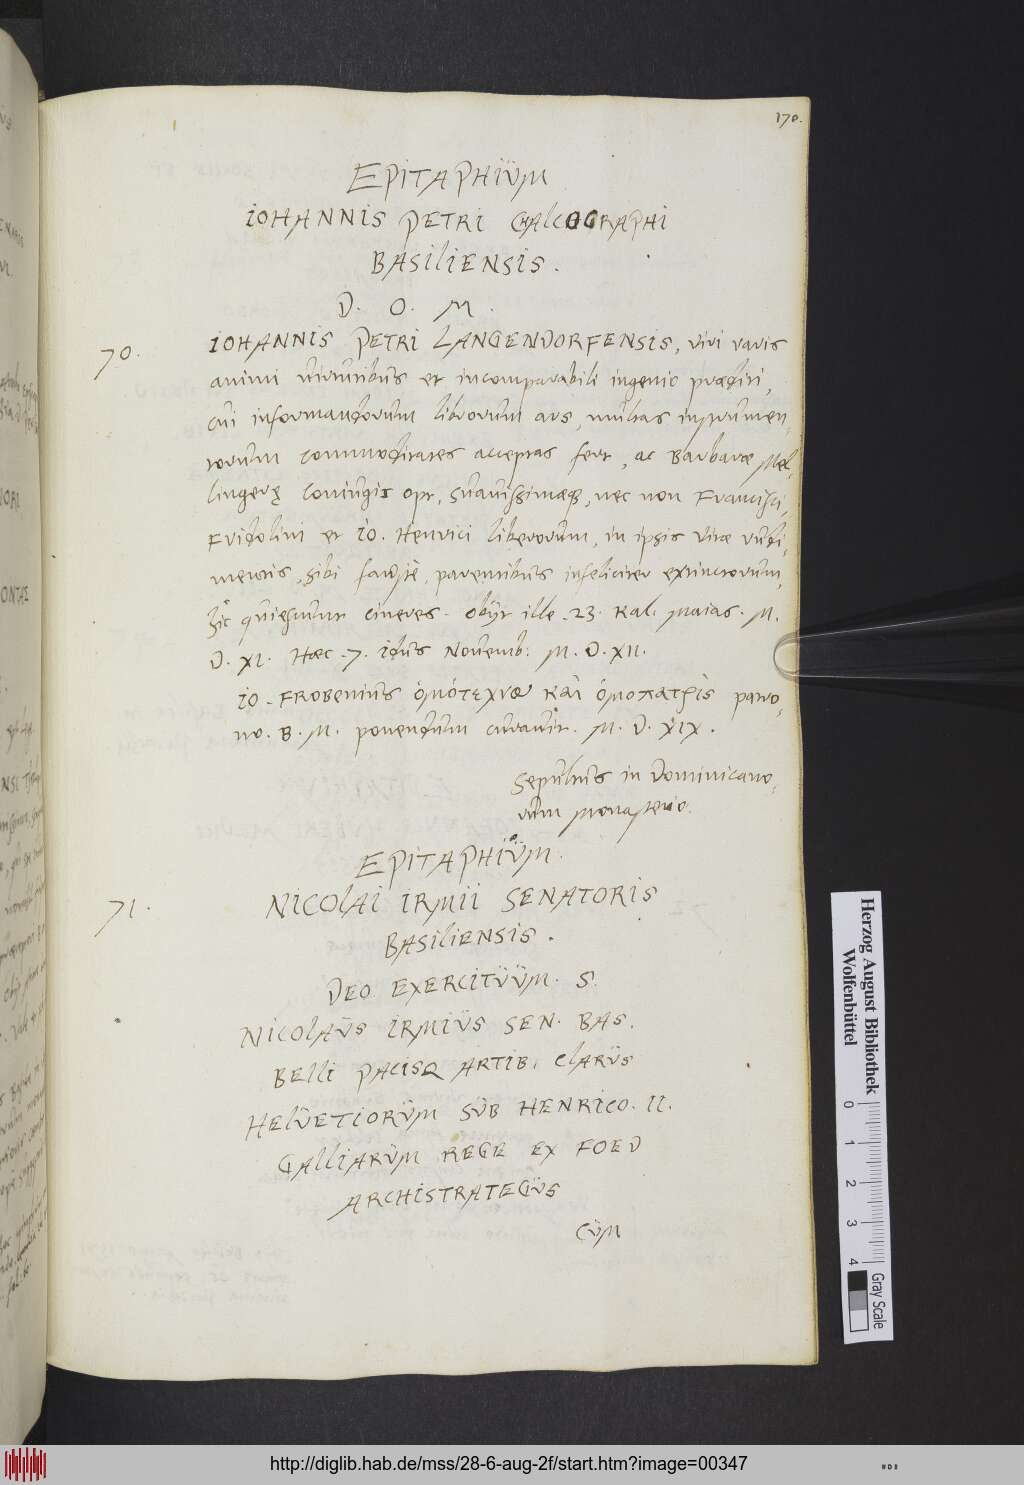 170.
EPITAPHIÜM
IOHANNIS PETRI CHALCOGRAPHI
BASILIENSIS.
D. O. M.
70.
IOHANNIS PETRI LANGENDORFENSIS, viri raris
animi virtutibus et incomparabili ingenio praediti,
cui informandorum librorum ars, multas instrumen,
torum commoditates acceptas fert, ac Barbarae Mel,
lingerę coniugis opt, suavissimaeq, nec non Francisci,
Fridolini et Io. Henrici liberorum, in ipsis vitae rudi,
mentis, sibi , parentibus infeliciter extinctorum,
hic quiescunt cineres. Obijt ille. 23. Kal. Maias. M.
D. XI. Haec. 7. idus Novemb. M. D. XII.
IO. FROBENIUS ὁμότεχνῳ καὶ ὁμοπατρὶς patro,
no. B. M. ponendum curavit. M. D. XIX.
Sepultus in Dominicano,
rum monasterio.
EPITAPHIÜM.
71.
NICOLAI IRMII SENATORIS
BASILIENSIS.
DEO EXERCITÜÜM. S.
NICOLAÜS IRMIÜS SEN. BAS.
BELLI PACISQ ARTIB. CLARÜS
HELÜETIORÜM SÜB HENRICO. II.
GALLIARÜM REGE EX FOED
ARCHISTRATEGÜS
CÜM
Herzog August Bibliothek
Wolfenbüttel
0 1 2 3 4
Gray Scale
http://diglib.hab.de/mss/28-6-aug-2f/start.htm?image=00347